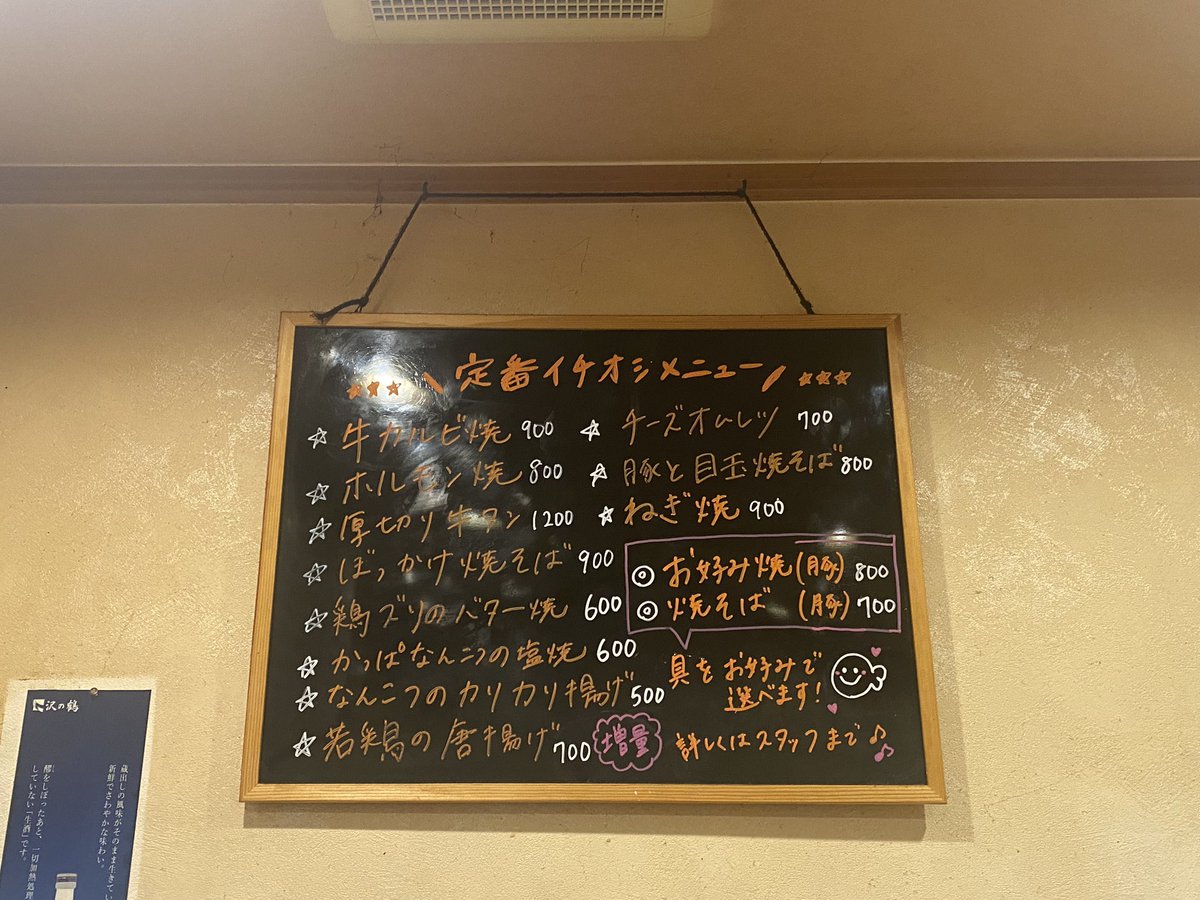 定番イチオシメニュー
☆ 牛カルビ焼 900
☆ ホルモン焼 800
☆ 厚切り牛タン 1200
☆ ぼっかけ焼そば 900
☆ 鶏ズリのバター焼 600
☆ かっぱなんこつの塩焼 600
☆ なんこつのカリカリ揚げ 500
☆ 若鶏の唐揚げ 700 増量
☆ チーズオムレツ 700
☆ 豚と目玉焼そば 800
☆ ねぎ焼 900
◎ お好み焼(豚) 800
◎ 焼そば (豚) 700
具をお好みで
選べます!
詳しくはスタッフまで♪♪
沢の鶴
蔵出しの風味がそのまま生きてい
新鮮でさわやかな味わい。
醪をしぼったあと、一切加熱処理
していない「生酒」です。